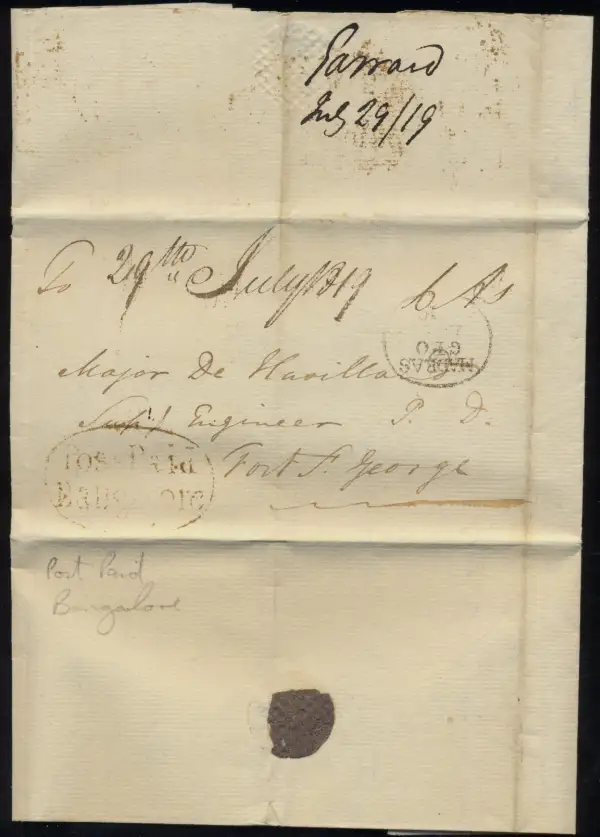 July 29/19
To 29th July 1819
MADRAS
GPO
Major De Havilland
Supt Engineer P. D.
Fort St. George
Post Paid
Bangalore
Post Paid
Bangalore